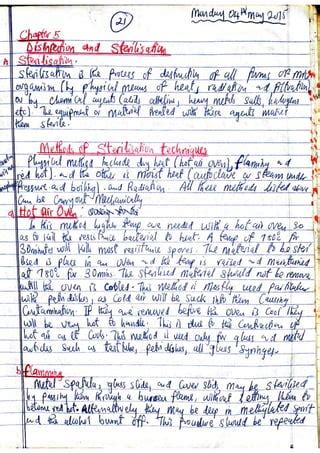 (21)
Monday 04th May 2015
Chapter 5
Disinfection and Sterilisation
A Sterilisation.
Sterilisation is the process of destruction of all forms of micro
organism (by physical means of heat, radiation and filtration
or by chemical agents (acids alkaline, heavy metal salts, halogens
etc). The equipment or material treated with these agents makes
them sterile.
Methods of Sterilisation techniques
Physical method include dry heat (hot air oven), flaming and
red hot). and the other is moist heat (autoclave or steam under
pressure and boiling). and Radiation. All these methods listed above
can be carryout mechanically
a) Hot air Oven:
In this method higher temp are needed with a hot air oven so
as to kill the resistance bacterial to heat. A temp of 180°c for
30minutes will kill most resistance spores. The material to be ster
lised is place in an oven and the temp is raised and maintained
at 180°c for 30mins. The sterilised material should not be remove
until the oven is cooled. This method is mostly used particular
with petridishes, as cold air will be suck into them causing
contamination. If they are removed before the oven is cool they
will be very hot to handle. This is due to the contraction of
hot air as it cools. This method is used only for glass and metal
articles such as test tube, petridishes, all glass syringes.
b. flamming
Metal spatula, glass slides, and cover slides may be sterilised
by passing them through a bunsen flame, without letting them to
become red hot. Alternatively they may be deep in methylated spirit
and the alcohol burnt off. This procedure should be repeated